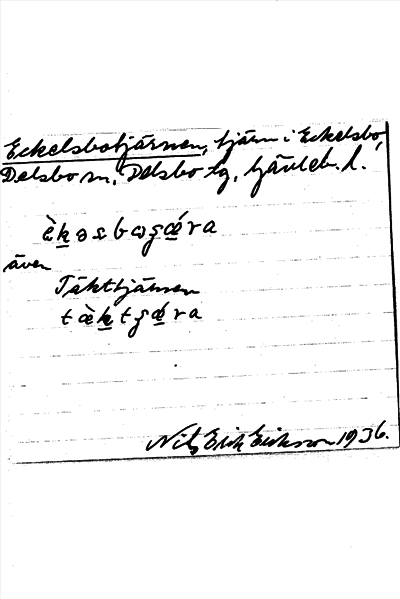 Eckelsbotjärnen, tjärn i Eckelsbo,
Delsbo sn, Delsbo tg, Gävleb. l.
èkəsboʂǽra
även
Täkttjärnen
tæ̀ktʂǽra
Nils Erik Eriksson 1936.